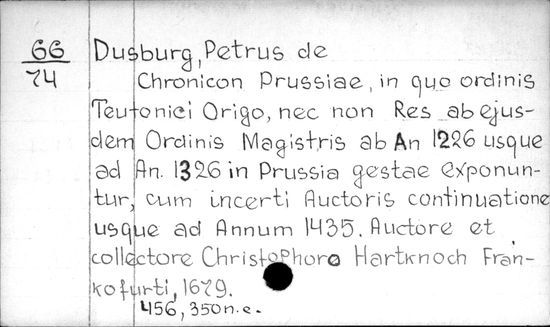 66
74
Dusburg, Petrus de
Chronicon Prussiae, in quo ordinis
Teutonici Origo, nec non Res ab ejus-
dem Ordinis Magistris ab An 1226 usque
ad An. 1326 in Prussia gestae exponun-
tur, cum incerti Auctoris continuatione
usque ad Annum 1435. Auctore et
collectore Christophoro Hartknoch Fran-
kofurti, 1679.
456, 350 n.e.